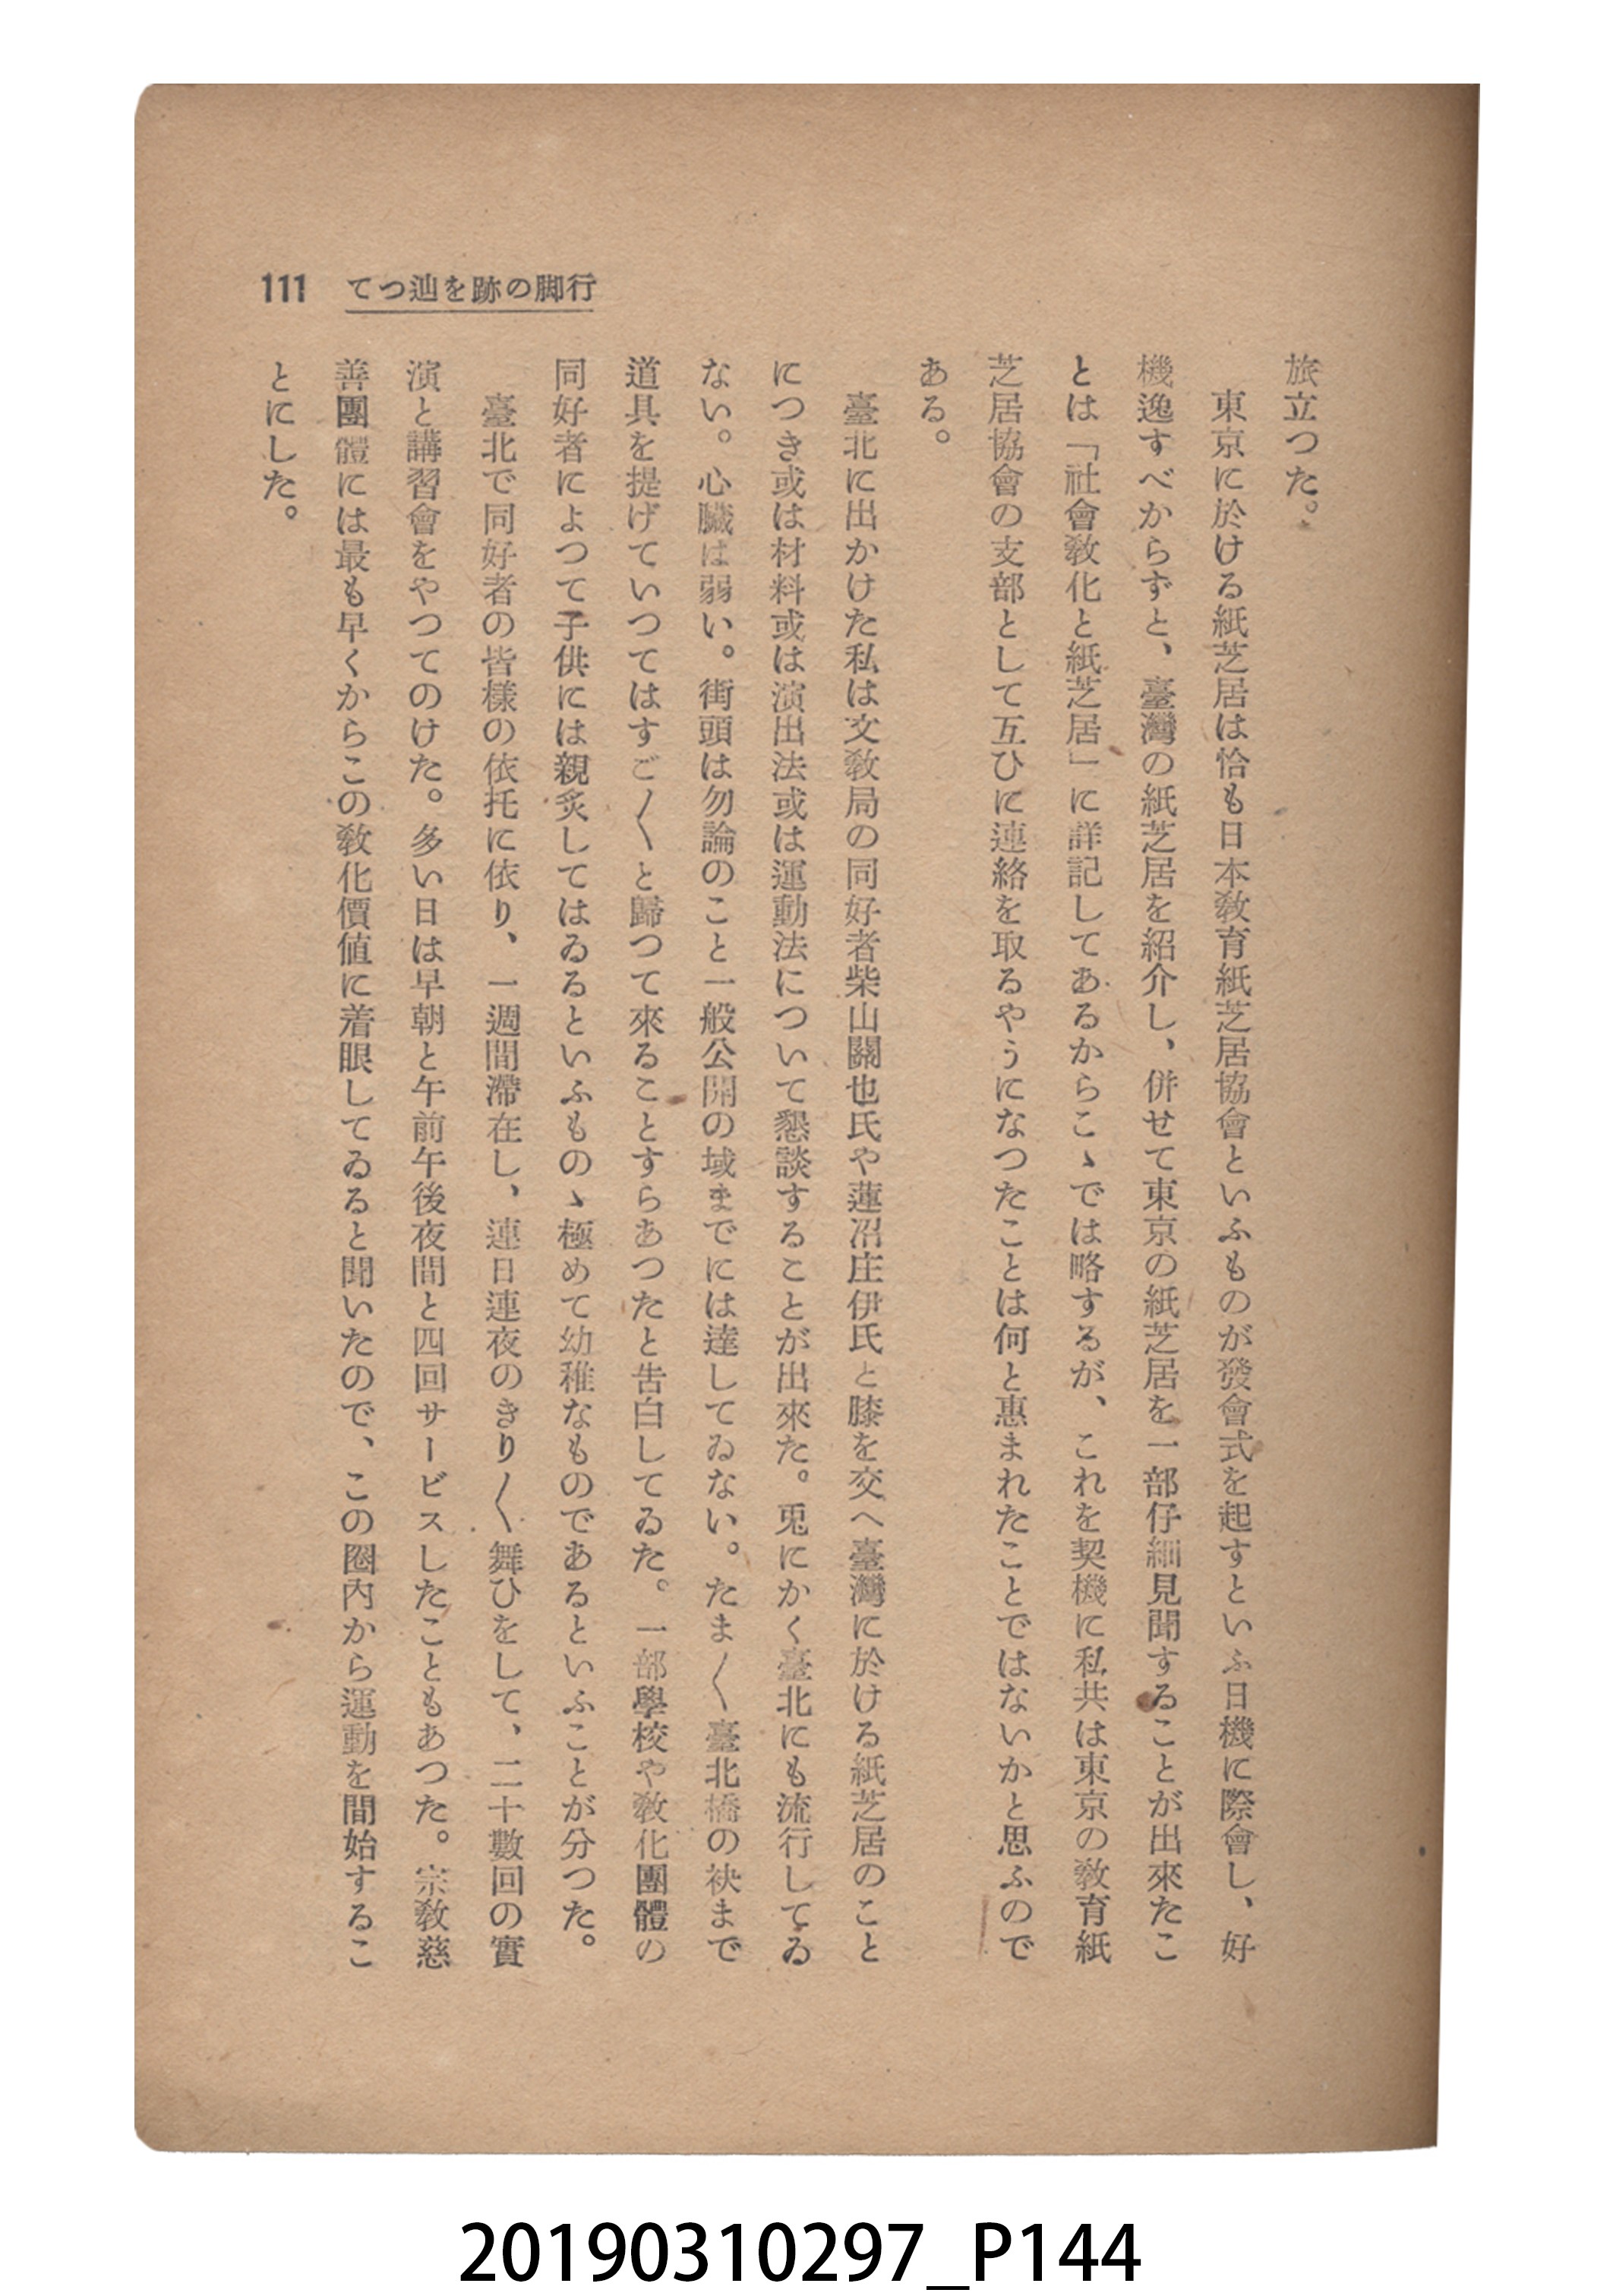 111 てつ辿を跡の脚行
旅立つた。
東京に於ける紙芝居は恰も日本教育紙芝居協會といふものが發會式を起すといふ日機に際會し、好
機逸すべからずと、臺灣の紙芝居を紹介し、併せて東京の紙芝居を一部仔細見聞することが出來たこ
とは「社會教化と紙芝居」に詳記してあるからこゝでは略するが、これを契機に私共は東京の教育紙
芝居協會の支部として互ひに連絡を取るやうになつたことは何と惠まれたことではないかと思ふので
ある。
臺北に出かけた私は文教局の同好者柴山關也氏や蓮沼庄伊氏と膝を交へ臺灣に於ける紙芝居のこと
につき或は材料或は演出法或は運動法について懇談することが出來た。兎にかく臺北にも流行してゐ
ない。心臟は弱い。街頭は勿論のこと一般公開の域までには達してゐない。たま〱臺北橋の袂まで
道具を提げていつてはすご〱と歸つて來ることすらあつたと告白してゐた。一部學校や教化團體の
同好者によつて子供には親炙してはゐるといふものゝ極めて幼稚なものであるといふことが分つた。
臺北で同好者の皆樣の依托に依り、一週間滯在し、連日連夜のきり〱舞ひをして、二十數回の實
演と講習會をやつてのけた。多い日は早朝と午前午後夜間と四回サービスしたこともあつた。宗教慈
善團體には最も早くからこの教化價値に着眼してゐると聞いたので、この圈内から運動を間始するこ
とにした。
20190310297_P144